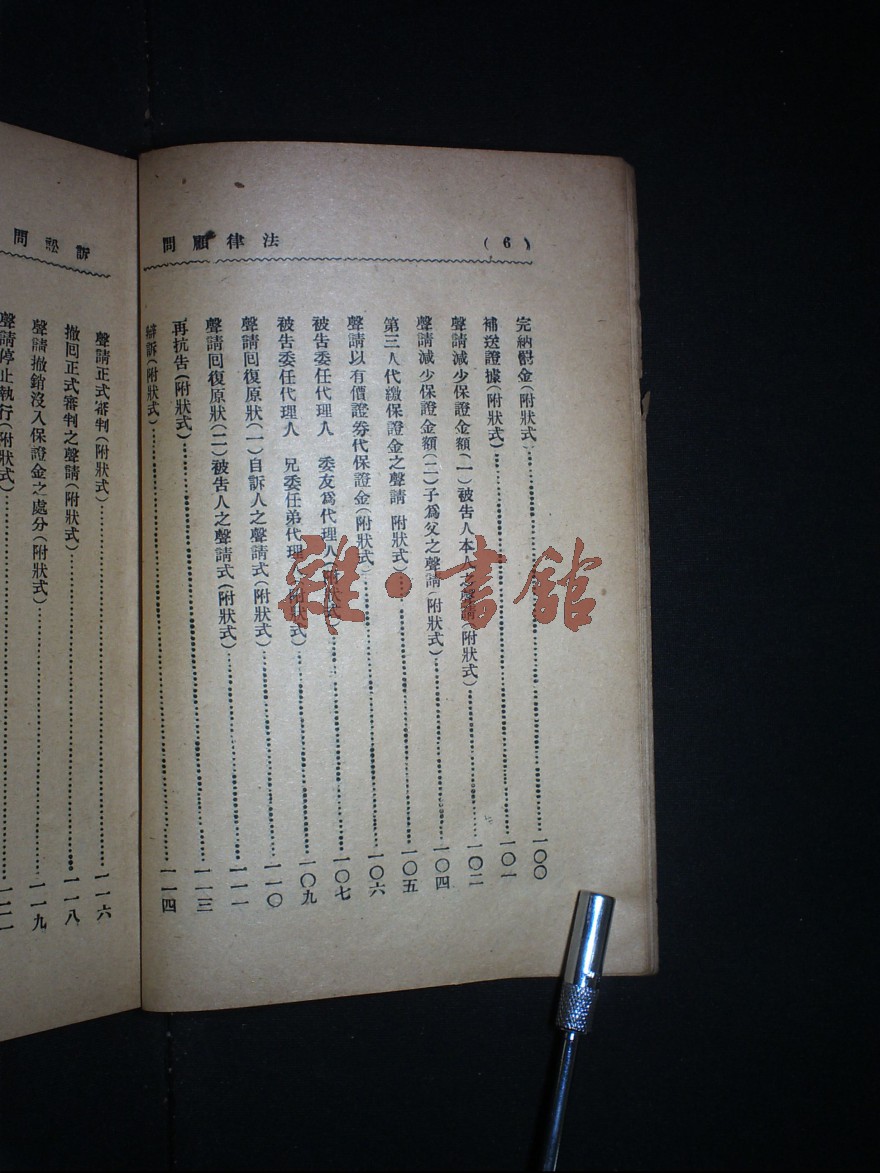 (6)
法律顧問
完納罰金(附狀式)……一〇〇
補送證據(附狀式)……一〇一
聲請減少保證金額(一)被告人本人之聲請(附狀式)……一〇二
聲請減少保證金額(二)子爲父之聲請(附狀式)……一〇四
第三人代繳保證金之聲請 附狀式)……一〇五
聲請以有價證券代保證金(附狀式)……一〇六
被告委任代理人 委友爲代理人(附狀式)……一〇七
被告委任代理人 兄委任弟代理人(附狀式)……一〇九
聲請回復原狀(一)自訴人之聲請式(附狀式)……一一〇
聲請回復原狀(二)被告人之聲請式(附狀式)……一一一
再抗告(附狀式)……一一三
辯訴(附狀式)……一一四
訴訟問
聲請正式審判(附狀式)……一一六
撤回正式審判之聲請(附狀式)……一一八
聲請撤銷沒入保證金之處分(附狀式)……一一九
聲請停止執行(附狀式)……一二一
雜·書館